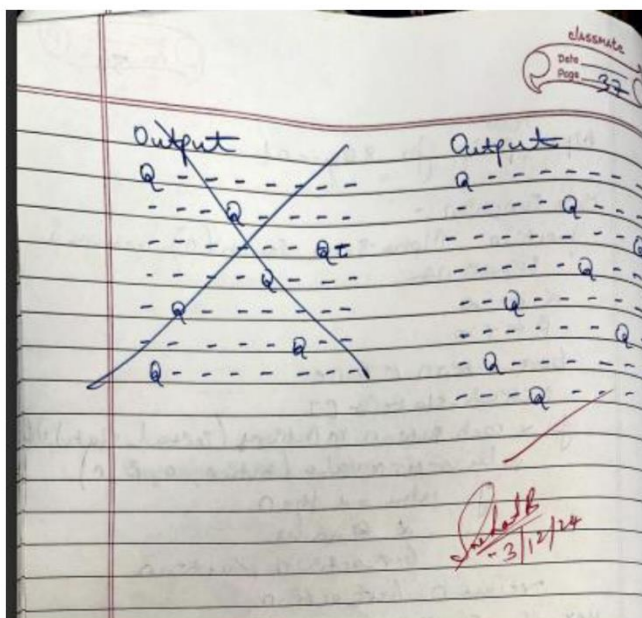 classmate
Date
Page 37
Output
Q - - - - - - -
- - - Q - - - -
- - - - - - - Q
- - - - Q - - -
- Q - - - - - -
- - - - - Q - -
Q - - - - - -
Output
Q - - - - - - -
- - - - Q - - -
- - - - - - - Q
- - - - - Q - -
- - Q - - - - -
- - - - - - Q -
- Q - - - - - -
- - - Q - - - -
3/12/24